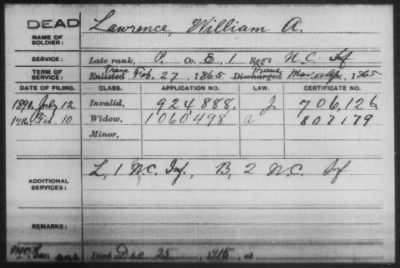 DEAD
NAME OF SOLDIER:
Lawrence, William A.
SERVICE:
Late rank, P. Co. E, 1 Reg't N.C. Inf
TERM OF SERVICE:
Enlisted Feb. 27, 1865 Discharged 1865
DATE OF FILING. CLASS. APPLICATION NO. LAW. CERTIFICATE NO.
1890 July 12 Invalid, 924,888, J 706,126
10 Widow, 1060498 a 807179
Minor,
ADDITIONAL SERVICES:
L, 1 N.C. Inf., B, 2 N.C. Inf
REMARKS:
Died Dec 25, 1915, at